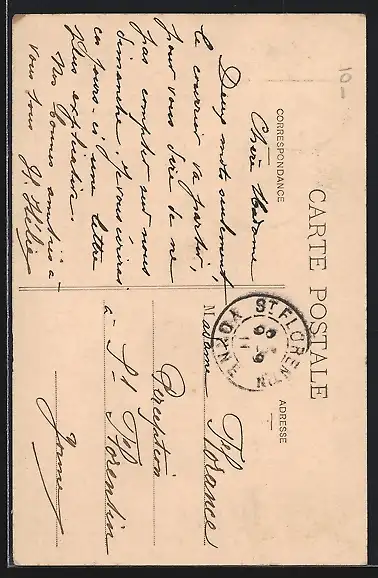 10
CARTE POSTALE
CORRESPONDANCE
ADRESSE
Chère Madame
Deux mots seulement,
le courrier va partir,
pour vous dire de ne
pas compter sur nous
dimanche. Je vous écrirai
ces jours-ci une lettre
plus explicative.
Nos bonnes amitiés à
vous tous
ST FLORENTIN
YONNE
Madame Florance
Perception
à St Florentin
Yonne